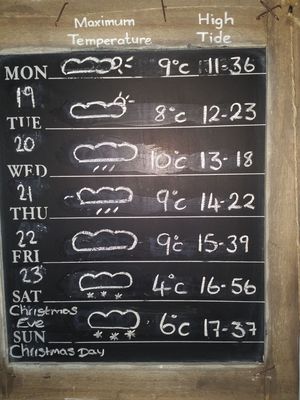 Maximum High
Temperature Tide
MON 9°c 11-36
19
TUE 8°c 12-23
20
WED 10°c 13-18
21
THU 9°c 14-22
22
FRI 9°c 15-39
23
SAT 4°c 16-56
Christmas
Eve
SUN 6°c 17-37
Christmas Day